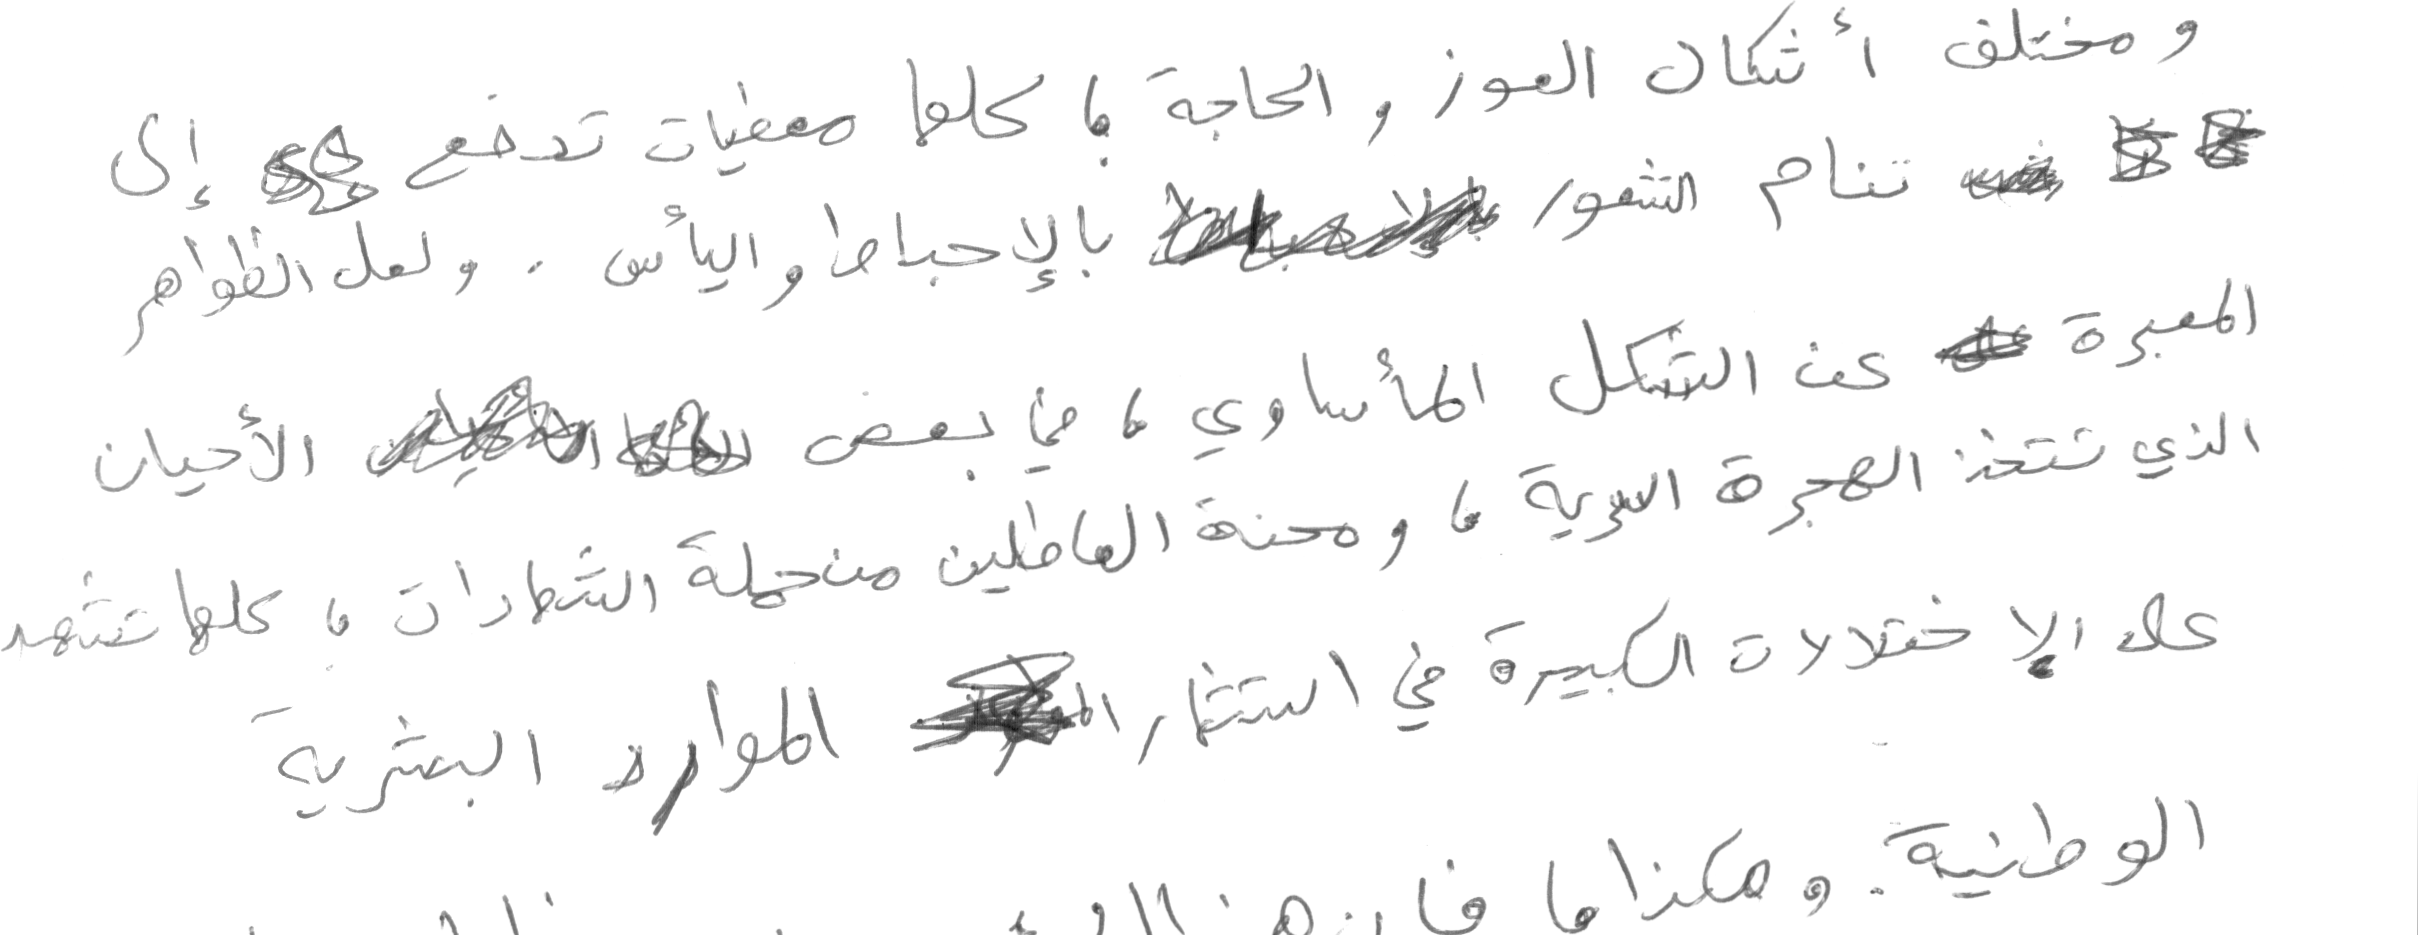 ومختلف أشكال العوز والحاجة، كلها معطيات تدفع إلى
تنام الشعور بالإحباط واليأس. ولعل الظواهر
المعبرة عن الشكل المأساوي، في بعض الأحيان
الذي تتخذ الهجرة السرية، ومحنة العاطلين من حملة الشهادات، كلها تشهد
على الإختلالات الكبيرة في استثمار الموارد البشرية
الوطنية. وهكذا، فإن هذا